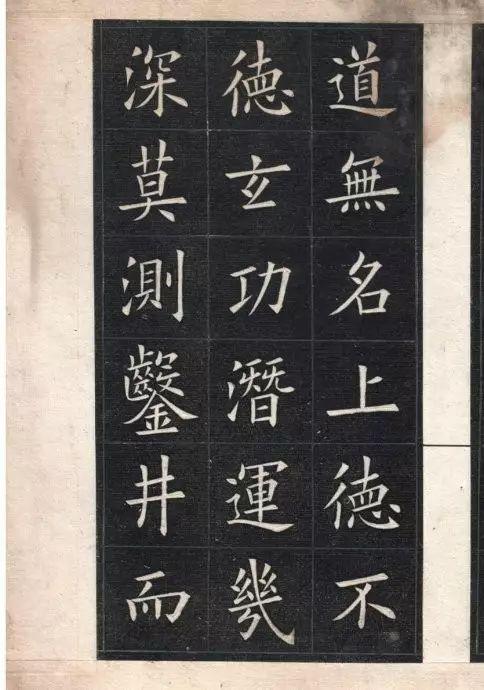 道無名上德不
德玄功潛運幾
深莫測鑿井而